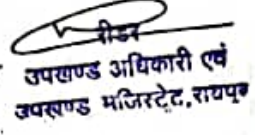 रीडर
उपखण्ड अधिकारी एवं
उपखण्ड मजिस्टेट, रायपुर